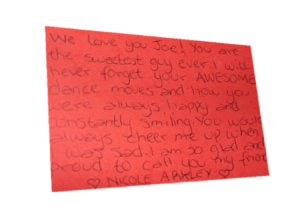 We love you Joe! You are
the sweetest guy ever. I will
never forget your AWESOME
dance moves and how you
were always happy and
constantly smiling You would
always cheer me up when
I was sad. I am so glad and
proud to call you my friend
♡ NICOLE